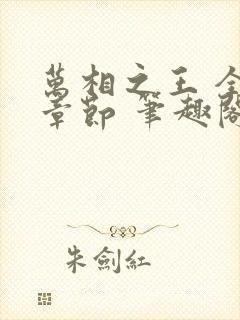 萬相之王 全
章節 筆趣閣
朱劍紅